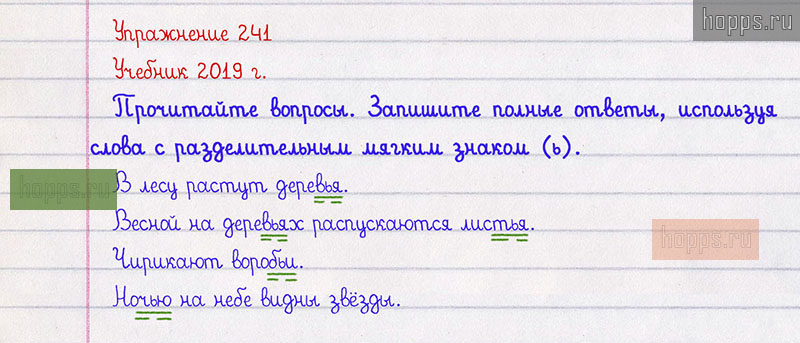 hopps.ru
Упражнение 241
Учебник 2019 г.
Прочитайте вопросы. Запишите полные ответы, используя
слова с разделительным мягким знаком (ь).
В лесу растут деревья.
hopps.ru
Весной на деревьях распускаются листья.
hopps.ru
Чирикают воробьи.
Ночью на небе видны звёзды.